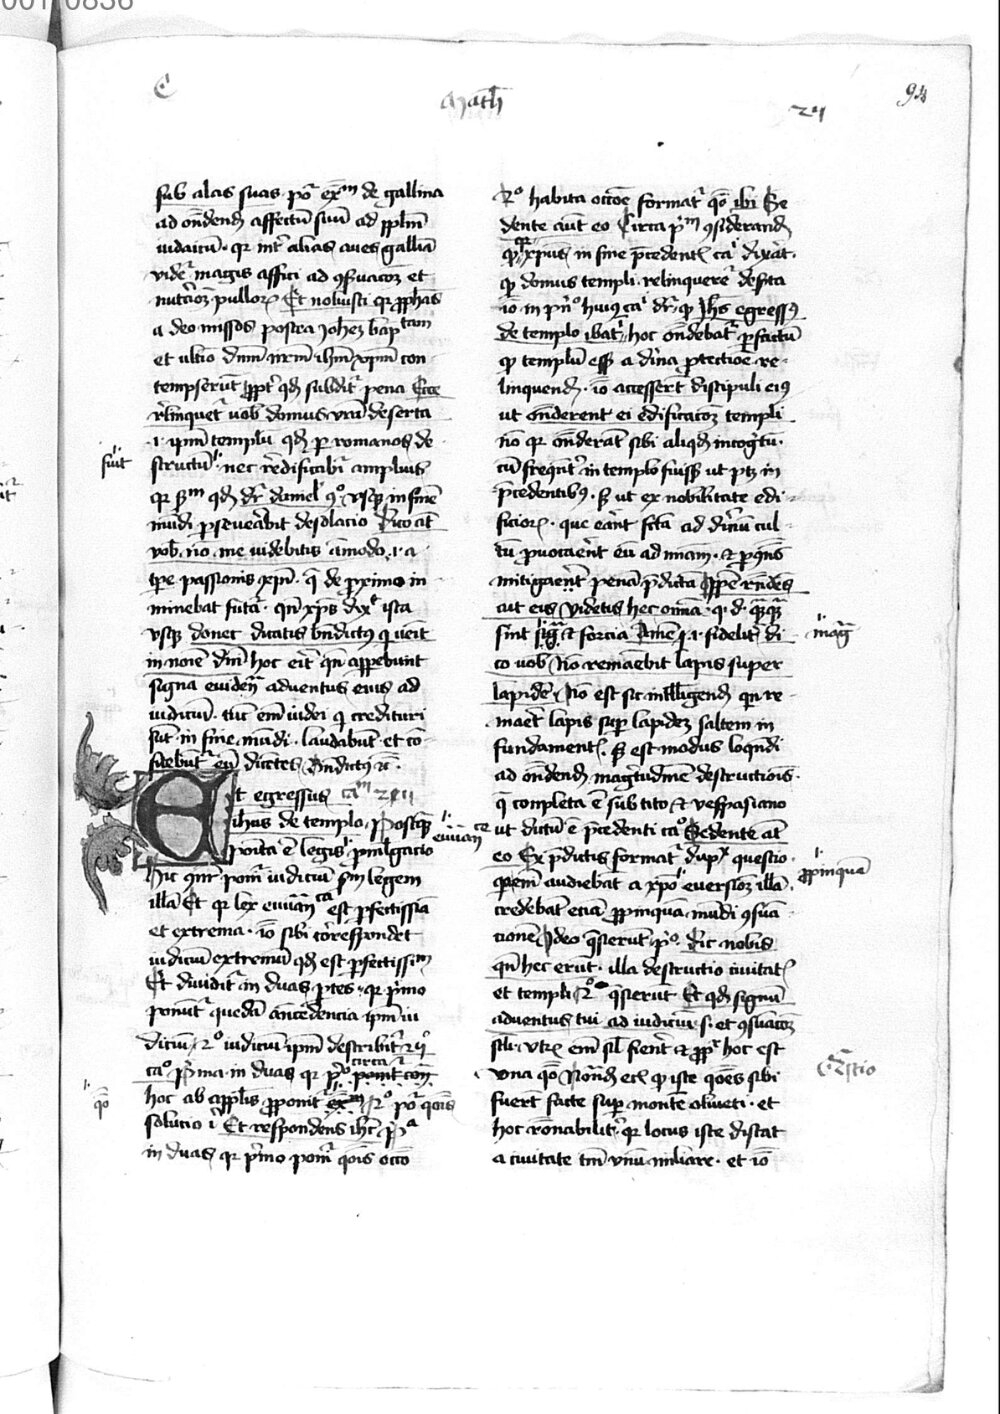 C
Math
24
94
sub alas suas. pō exm de gallina
ad ōndend affectū suū ad pplm
iudaicū. qr int̄ alias aues gallia
vider magis affici ad ꝯsuacoꝫ et
nutcioꝫ pulloꝝ Et noluisti qr pphas
a deo missos postea Johēꝫ baptam
et vltio dnm nrm ihm xpm con-
tempserūt ppt qd subdit pena Ecce
relinquet uob domus vrā deserta
.i. ipm templū qd p romanos de-
structū nec reedificabit amplius
fuit
qr scdm qd dr daniel 9o vsqꝫ in finē
mūdi pseuerabit desolacio Dico āt
vob. nō me videbitis āmodo .i. a
tpe passionis xpi. q̄ de proximo in-
minebat futa. qn xps dixt ista
vsqꝫ donec dicatis bndictꝰ q ueit
in noīe dni hoc erit qn apparebunt
signa eviden aduentus eius ad
iudiciū. tūc em iudei q credituri
sūt in fine mūdi. laudabūt et co-
fitebūt eū dicētes Bndictꝰ &c.
Et egressus cam 24
ihus de templo. Postqꝫ
posita ē legis promulgacio
euuan ce
hic ponit iudiciū scdm legem
illā Et qr lex euuanca est pfectissia
et extrema. iō sibi correspondet
iudiciū extremū qd est pfectissim
Et diuidit in duas ptes. qr primo
ponūt quedā āncedencia ipm iu-
diciū. 2o iudiciū ipm describit 25
cao Prima in duas qr po circa
ponit con
hoc ab applis pponit 2o pō qōis
qō
solucio i Et respondens ihc Pa
in duas qr primo ponit qōis occō
Ro habita occōe format qō ibi Se
dente aut eo Circa pm ꝯsiderand
qr xpus in fine precedentꝭ ca dixāt.
qꝫ domus templi relinqueret deserta
iō in pno huiꝰ ca dr. qꝫ Ihs egressꝰ
de templo ibat. hoc ōndebat p factū
qꝫ templū esset a dina ptectiōe re-
linquend. iō accesserūt discipuli eiꝰ
ut ōnderent ei edificacoꝫ templi
nō qr ōnderāt sibi aliqd incogtū.
cū frequēt in templo fuisset ut ptꝫ in
precedentibꝰ. sꝫ ut ex nobilitate edi-
ficioꝝ. que erant fcta ad diuinū cul-
tū prouocarēt eū ad miam. et p ꝯns
mitigarent penā pdictā Ipse rndēs
aut eis Videtis hec omnia. q. d. quāqꝫ
sint sigā et forcia Amē .i. fidelit di-
magā
co uob Nō remanebit lapis super
lapidē Nō est sic intelligend qn re-
maet lapis sup lapideꝫ saltem in
fundamentꝭ. sꝫ est modus loquēdi
ad ōndend magitudinē destructionis.
q̄ completa ē sub tito et vespasiano
ut dictū ē precedenti cao Sedente āt
eo Ex pdictis format dupx questio.
qꝫ enim audiebāt a xpo euersioꝫ illā
ppinquā
credebāt eciā ppinquā mūdi ꝯsūa-
cionē Ideo q̄sierūt po. Dic nobis
qn hec erūt. illa destructio ciuitatꝭ
et templi 2o q̄sierūt Et qd signū
aduentus tui ad iudiciū. s. et ꝯsūacoꝫ
scli. vtꝝ em sil fierēt et ppt hoc est
vna qō Notād ecl qꝫ iste qōes sibi
Questio
fuerūt facte sup montē oliueti. et
hoc rōnabilit. qr locus iste distat
a ciuitate tm vnū miliare. et iō